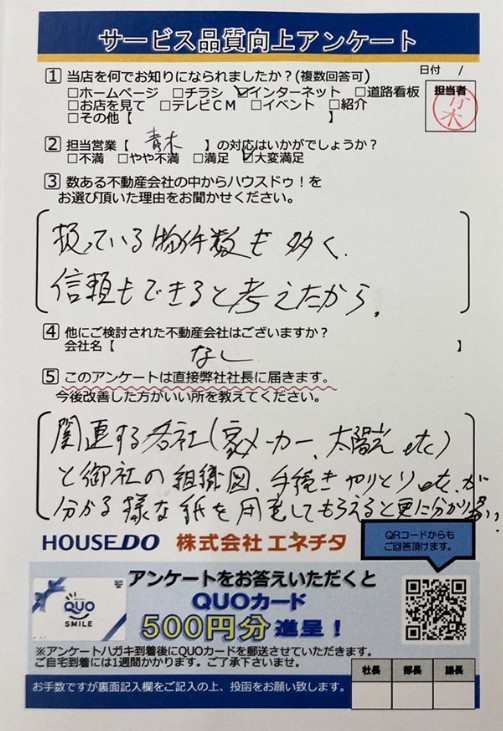 サービス品質向上アンケート
日付 /
1 当店を何でお知りになられましたか?(複数回答可)
□ホームページ □チラシ ☑インターネット □道路看板
□お店を見て □テレビCM □イベント □紹介
□その他【 】
担当者
青木
2 担当営業【 青木 】の対応はいかがでしょうか?
□不満 □やや不満 □満足 ☑大変満足
3 数ある不動産会社の中からハウスドゥ!を
お選び頂いた理由をお聞かせください。
扱っている物件数も多く、
信頼もできると考えたから。
4 他にご検討された不動産会社はございますか?
会社名【 なし 】
5 このアンケートは直接弊社社長に届きます。
今後改善した方がいい所を教えてください。
関連する各社(家メーカー、太陽光 etc)
と御社の組織図、手続きやりとり etc. が
分かる様な紙を用意してもらえると更に分かり易い
HOUSEDO 株式会社 エネチタ
QRコードからも
ご回答頂けます。
QUO
SMILE
アンケートをお答えいただくと
QUOカード
500円分 進呈!
※アンケートハガキ到着後にQUOカードを郵送させていただきます。
ご自宅到着には1週間かかります。ご了承下さいませ。
社長 部長 課長
お手数ですが裏面記入欄をご記入の上、投函をお願い致します。